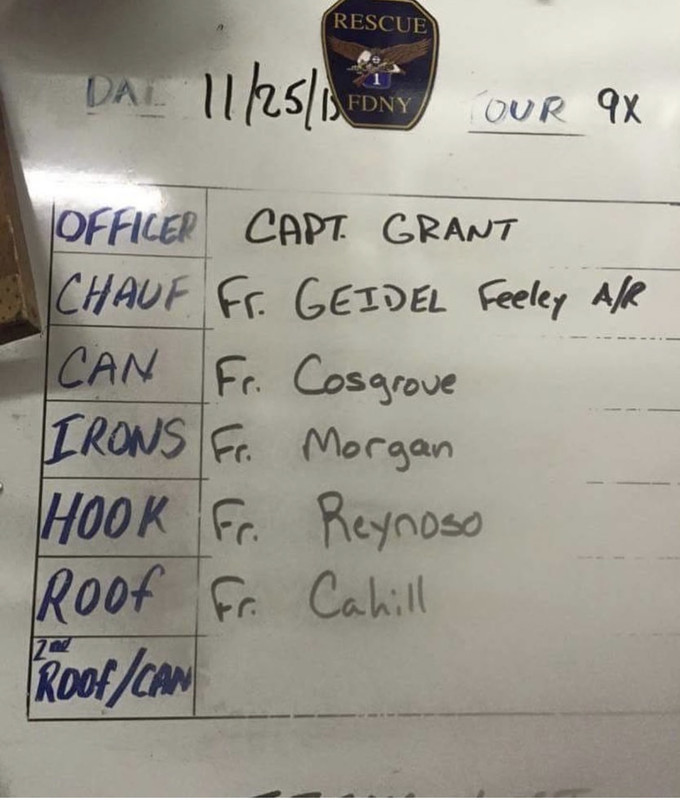 RESCUE
1
FDNY
11/25/15 TOUR 9X
OFFICER CAPT. GRANT
CHAUF Fr. GEIDEL Feeley A/R
CAN Fr. Cosgrove
IRONS Fr. Morgan
HOOK Fr. Reynoso
ROOf Fr. Cahill
2nd
ROOf/CAN